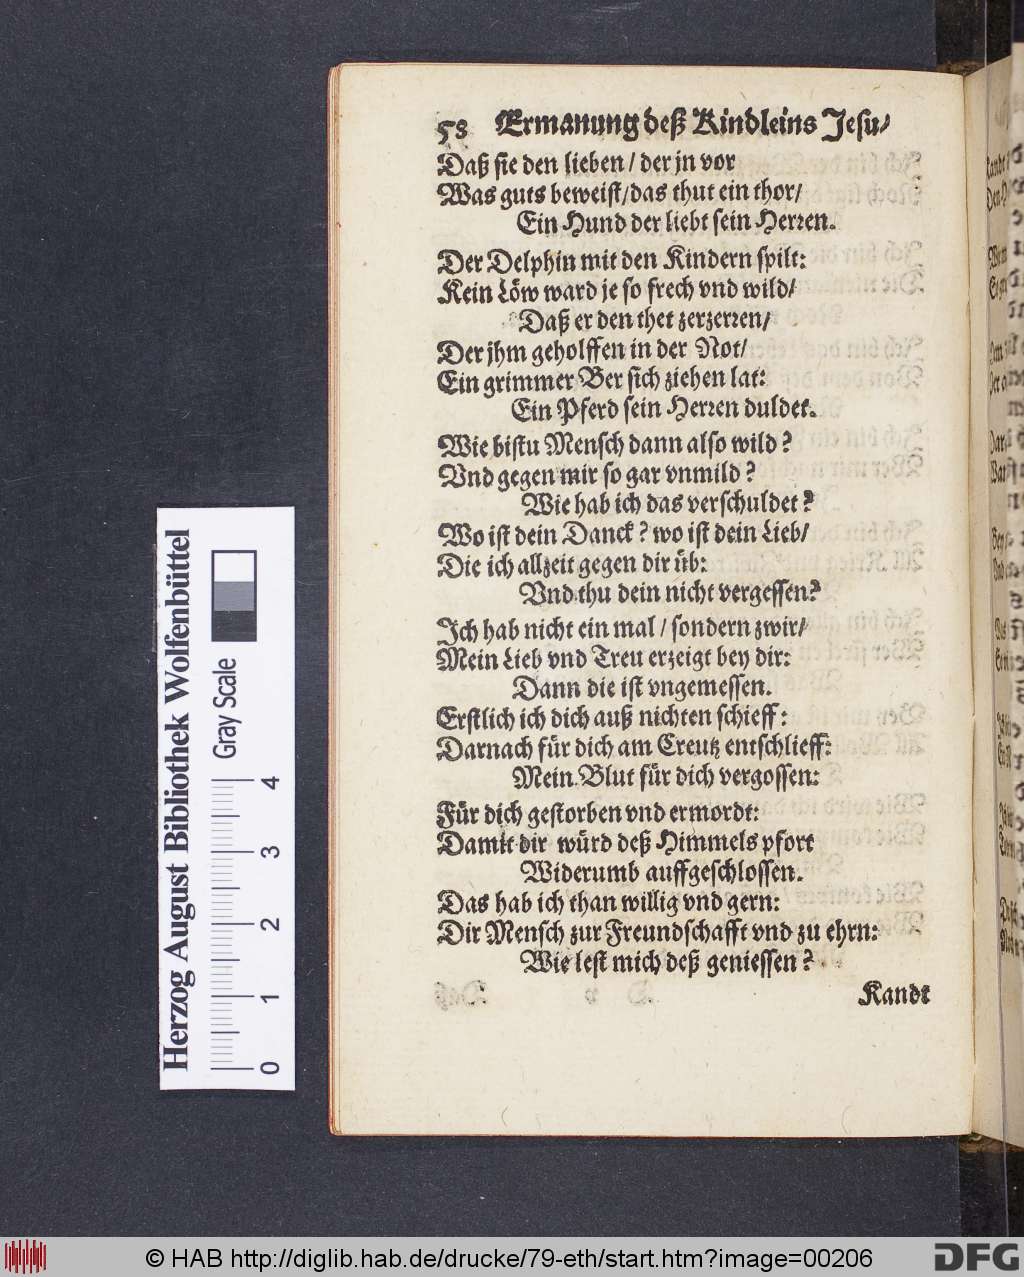 58 Ermanung deß Kindleins Jesu/
Daß sie den lieben / der jn vor
Was guts beweist/das thut ein thor/
Ein Hund der liebt sein Herren.
Der Delphin mit den Kindern spilt:
Kein Löw ward je so frech vnd wild/
Daß er den thet zerzerren/
Der jhm geholffen in der Not/
Ein grimmer Ber sich ziehen lat:
Ein Pferd sein Herren duldet.
Wie bistu Mensch dann also wild ?
Vnd gegen mir so gar vnmild ?
Wie hab ich das verschuldet ?
Wo ist dein Danck ? wo ist dein Lieb/
Die ich allzeit gegen dir üb:
Vnd thu dein nicht vergessen?
Ich hab nicht ein mal / sondern zwir/
Mein Lieb vnd Treu erzeigt bey dir:
Dann die ist vngemessen.
Erstlich ich dich auß nichten schieff :
Darnach für dich am Creutz entschlieff:
Mein Blut für dich vergossen:
Für dich gestorben vnd ermordt:
Damit dir würd deß Himmels pfort
Widerumb auffgeschlossen.
Das hab ich than willig vnd gern:
Dir Mensch zur Freundschafft vnd zu ehrn:
Wie lest mich deß geniessen ?
Kandt
Herzog August Bibliothek Wolfenbüttel
Gray Scale
0 1 2 3 4
© HAB http://diglib.hab.de/drucke/79-eth/start.htm?image=00206
DFG